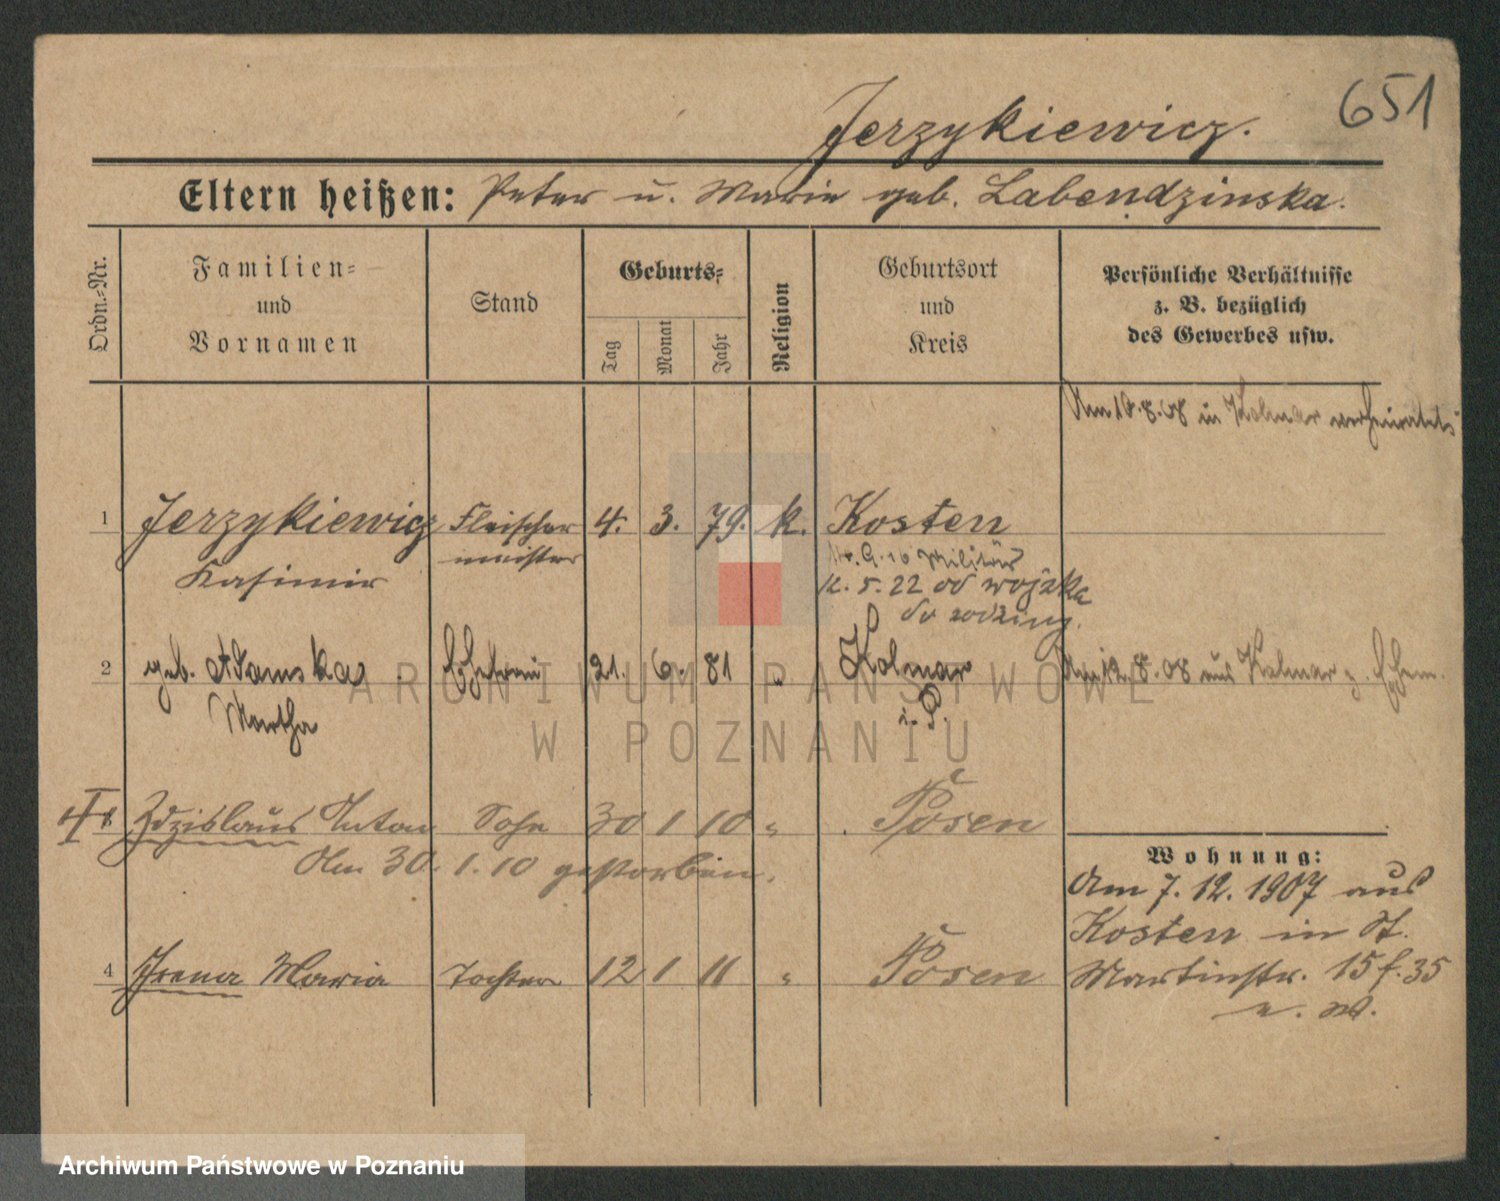 651
Jerzykiewicz.
Eltern heißen: Peter u. Marie geb. Labendzinska.
Ordn.-Nr.
Familien- und Vornamen
Stand
Geburts-
Tag
Monat
Jahr
Religion
Geburtsort und Kreis
Persönliche Verhältnisse
z. B. bezüglich
des Gewerbes usw.
in Kolmar verheiratet
1 Jerzykiewicz Fleischer 4. 3. 79. k. Kosten
meister
Kasimir
Militär
5. 22 od wojska
do rodziny.
2 geb. Adamska Ehefrau 21. 6. 81 " Kolmar Am 12.8.08 aus Kolmar z. Ehem.
Martha i. P.
3 Zdzislaus Anton Sohn 30 1 10 " Posen
Am 30. 1. 10 gestorben.
Wohnung:
Am 7. 12. 1907 aus
Kosten in St.
4 Irena Maria Tochter 12 1 11 " Posen Martinstr. 15 f. 35
ARCHIWUM PAŃSTWOWE
W POZNANIU
Archiwum Państwowe w Poznaniu